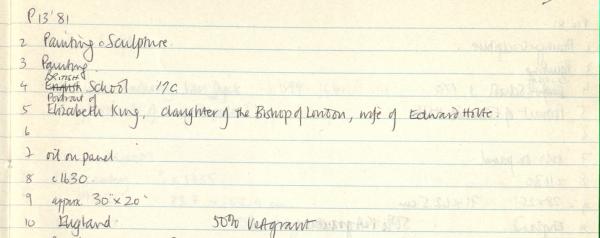 P13'81
2 Painting & Sculpture.
3 Painting
British
4 English School 17C
Portrait of
5 Elizabeth King, daughter of the Bishop of London, wife of Edward Holte.
6
7 oil on panel
8 c1630
9 approx. 30" x 20"
10 England 50% V&A grant